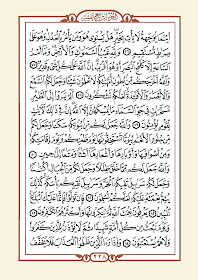 أينما يوجهه لا يأت بخير هل يستوي هو ومن يأمر بالعدل وهو على
صراط مستقيم ولله غيب السماوات والأرض وما أمر
الساعة إلا كلمح البصر أو هو أقرب إن الله على كل شيء قدير
والله أخرجكم من بطون أمهاتكم لا تعلمون شيئا وجعل لكم السمع
والأبصار والأفئدة لعلكم تشكرون ألم يروا إلى الطير
مسخرات في جو السماء ما يمسكهن إلا الله إن في ذلك لآيات لقوم
يؤمنون والله جعل لكم من بيوتكم سكنا وجعل لكم
من جلود الأنعام بيوتا تستخفونها يوم ظعنكم ويوم إقامتكم
ومن أصوافها وأوبارها وأشعارها أثاثا ومتاعا إلى حين
والله جعل لكم مما خلق ظلالا وجعل لكم من الجبال أكنانا
وجعل لكم سرابيل تقيكم الحر وسرابيل تقيكم بأسكم كذلك
يتم نعمته عليكم لعلكم تسلمون فإن تولوا فإنما عليك البلاغ
المبين يعرفون نعمت الله ثم ينكرونها وأكثرهم الكافرون
ويوم نبعث من كل أمة شهيدا ثم لا يؤذن للذين كفروا
ولا هم يستعتبون وإذا رأى الذين ظلموا العذاب فلا يخفف